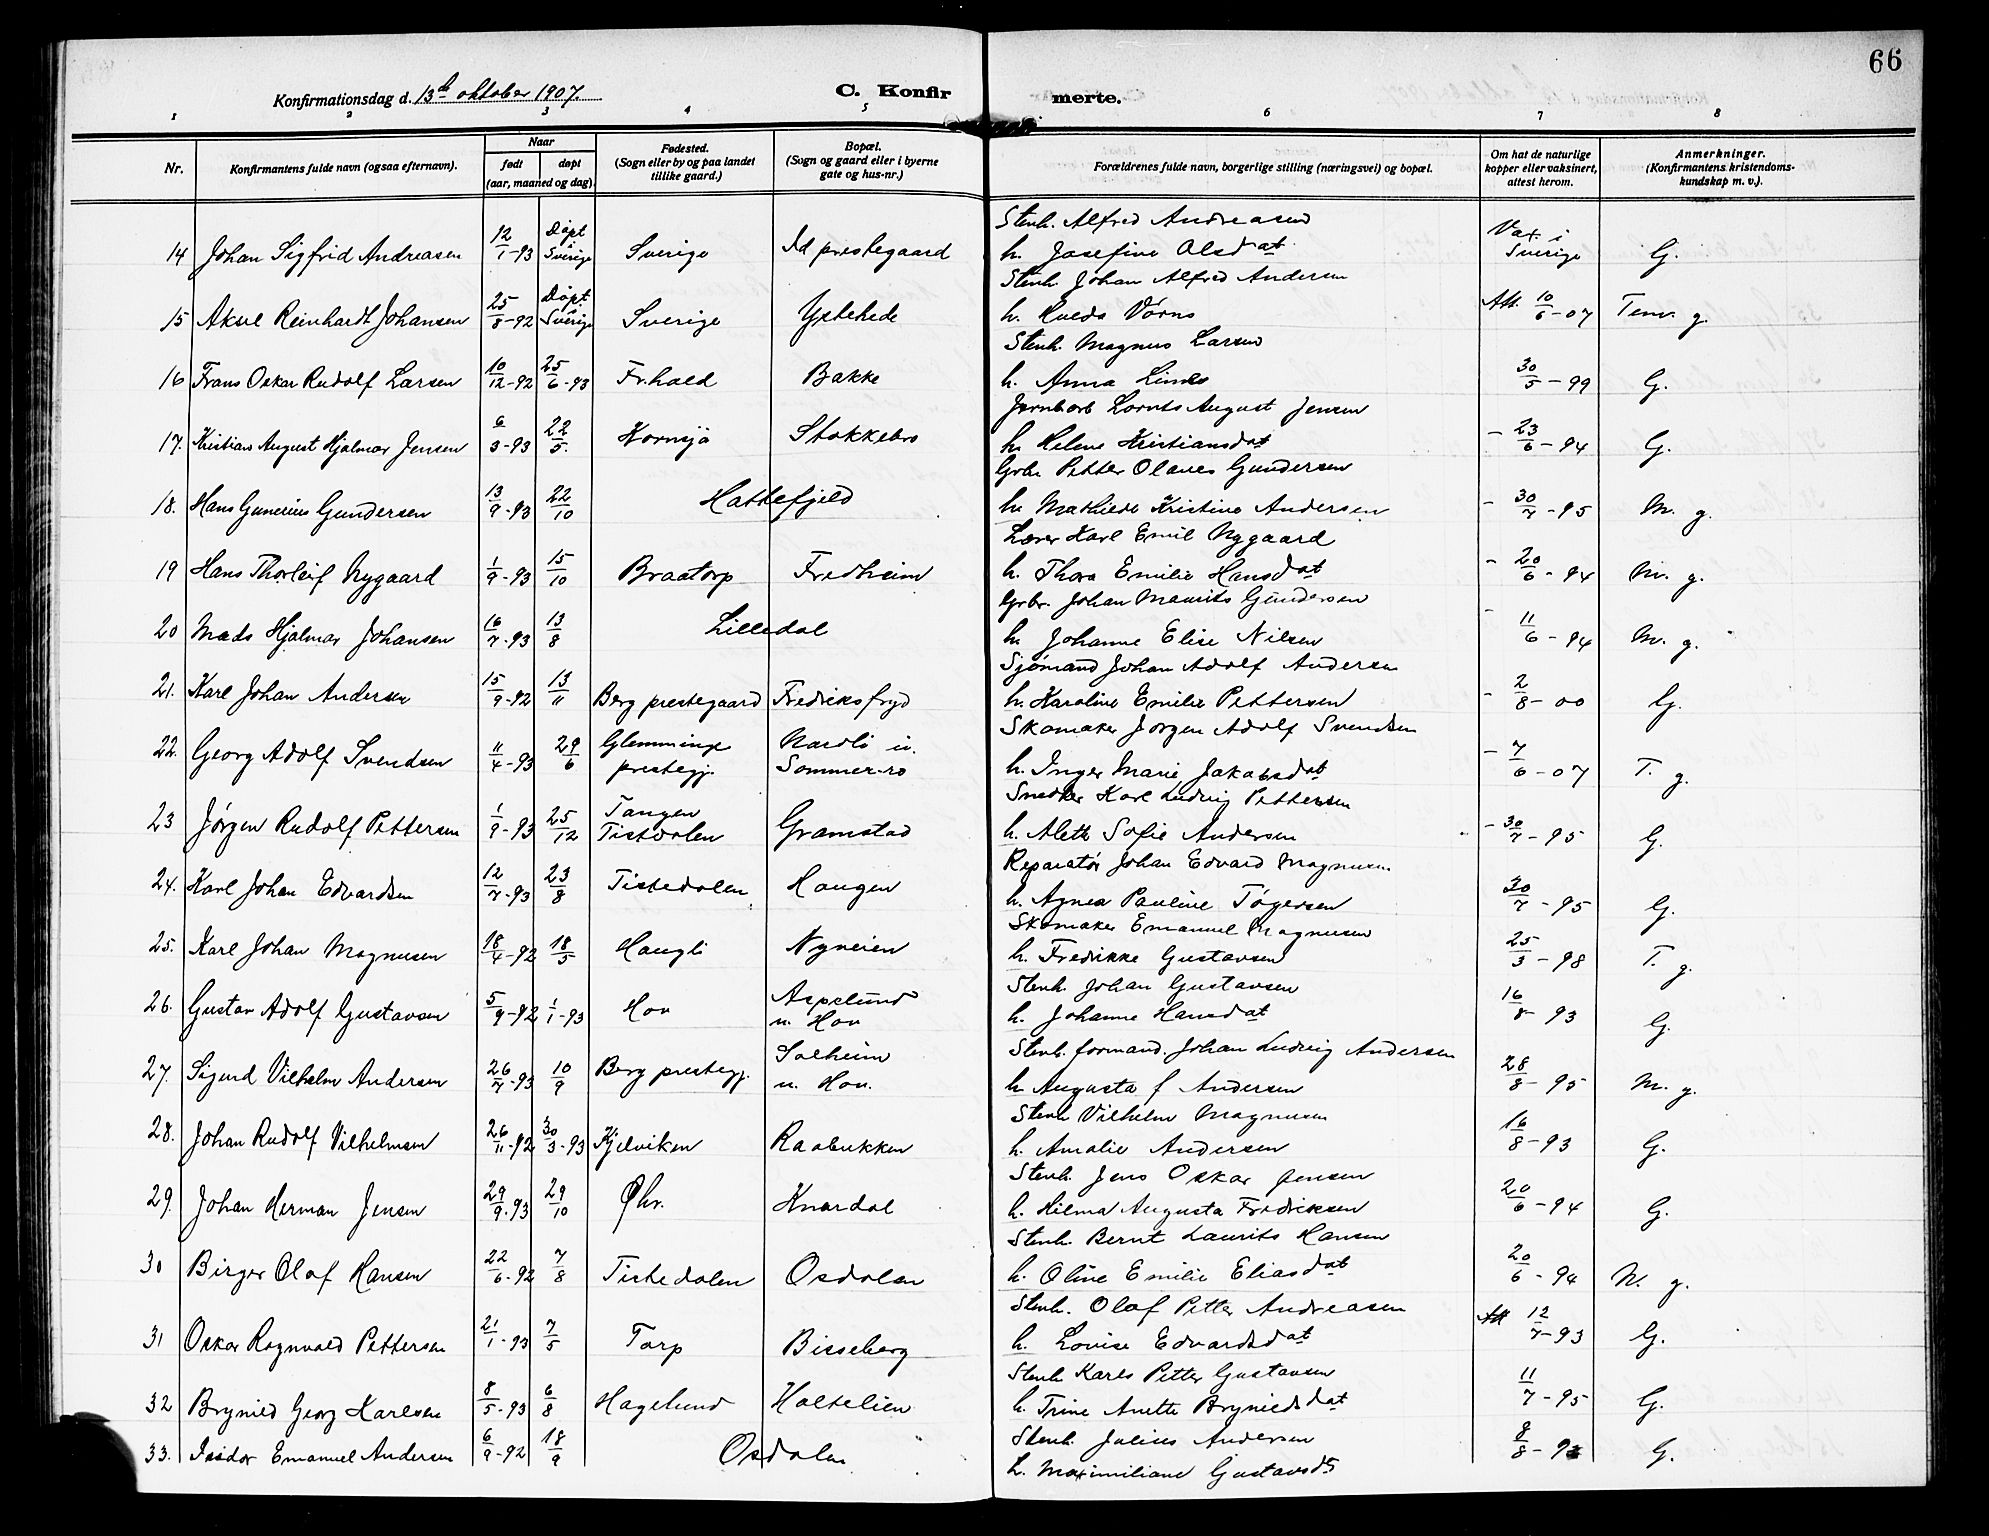 66
Konfirmationsdag d. 13de oktober 1907.
C. Konfir merte.
1 2 3 4 5 6 7 8
Nr. Konfirmantens fulde navn (ogsaa efternavn). Naar født døpt (aar, maaned og dag). Fødested. (Sogn eller by og paa landet tillike gaard.) Bopæl. (Sogn og gaard eller i byerne gate og hus-nr.) Forældrenes fulde navn, borgerlige stilling (næringsvei) og bopæl. Om hat de naturlige kopper eller vaksinert, attest herom. Anmerkninger. (Konfirmantens kristendoms-kundskap m. v.).
Stenh. Alfred Andreasen
14 Johan Sigfrid Andreasen 12/1-93 Døpt i Sverige Sverige Id prestegaard h. Josefine Olsdat Vax. i Sverige G.
Stenh. Johan Alfred Andersen
15 Aksel Reinhardt Johansen 25/8-92 Døpt i Sverige Sverige Ystehede h. Hulda Vørns Att. 10/6-07 Temr. g.
Stenh. Magnus Larsen
16 Frans Oskar Rudolf Larsen 10/12-92 25/6-93 Fr.hald Bakke h. Anna 30/5-99 G.
Jernbarb Lornts August Jensen
17. Kristian August Hjalmar Jensen 6/3-93 22/5. Kornsjø Stokkebro h. Helene Kristiansdat - 23/6-94 G.
Grbr. Petter Olaves Gundersen
18. Hans Gunerius Gundersen 13/9-93 22/10 Hattefjeld h. Mathilde Kristine Andersen - 30/7-95 M. g.
Lærer Karl Emil Nygaard
19 Hans Thorleif Nygaard 1/9-93 15/10 Braatorp Fredheim h. Thora Emilie Hansdat - 20/6-94 M. g.
Grbr. Johan Maurits Gundersen
20 Mads Hjalmar Johansen 16/7-93 13/8 Lilledal h. Johanne Elise Nilsen - 11/6-94 M. g.
Sjømand Johan Adolf Andersen
21. Karl Johan Andersen 15/9-92 13/11 Berg prestegaard Fredriksfryd h. Karoline Emilie Pettersen - 2/8-00 G.
Skomaker Jørgen Adolf Svendsen
22. Georg Adolf Svendsen 11/4-93 29/6 Glemminge prestegj. Nordli u. Sommerro h. Inger Marie Jakobsdat - 7/6-07 T. g.
Snedker Karl Ludvig Pettersen
23 Jørgen Rudolf Pettersen 1/9-93 25/12 Tangen Tistedalen Gramstad h. Aleth Sofie Andersen - 30/7-95 G.
Reparatør Johan Edvard Magnusen
24. Karl Johan Edvardsen 12/7-93 23/8 Tistedalen Haugen h. Agnes Pauline Tøgersen 30/7-95 G.
Skomaker Emanuel Magnusen
25. Karl Johan Magnusen 18/4-92 18/5 Haugli Nyveien h. Fredrikke Gustavsen 25/3-98 T. g.
Stenh. Johan Gustavsen
26. Gustav Adolf Gustavsen 5/9-92 1/1-93 Hov Aspelund u. Hov h. Johanne Hansdat 16/8-93 G.
Stenh. formand. Johan Ludvig Andersen
27. Sigurd Vilhelm Andersen 26/7-93 10/9 Berg prestegj. Solheim u. Hov. h. Augusta f Andersen 28/8-95 M. g.
Stenh Vilhelm Magnusen
28. Johan Rudolf Vilhelmsen 26/11-92 30/3-93 Kjelviken Raabukken h. Amalie Andersen 16/8-93 G.
Stenh. Jens Oskar Jensen
29. Johan Herman Jensen 29/9-93 29/10 Øhr. Knardal h. Hilma Augusta Fredriksen 20/6-94 G.
Stenh. Bernt Laurits Hansen
30 Birger Olaf Hansen 22/6-92 7/8 Tistedalen Osdalen h. Oline Emilie Eliasdat 20/6-94 M. g.
Stenh. Olaf Petter Andreasen
31 Oskar Ragnvald Pettersen 21/1-93 7/5 Torp Bisseberg h. Lovise Edvardsdat Att 12/7-93 G.
Stenh Karls Petter Gustavsen
32 Brynild Georg Karlsen 8/5-93 6/8 Hagelund Holtelien h. Trine Anette Brynildsdat 11/7-95 G.
Stenh. Julius Andersen
33. Isidor Emanuel Andersen 6/9-92 18/9 Osdalen h. Maximiliane Gustavsdt 8/8-93 G.